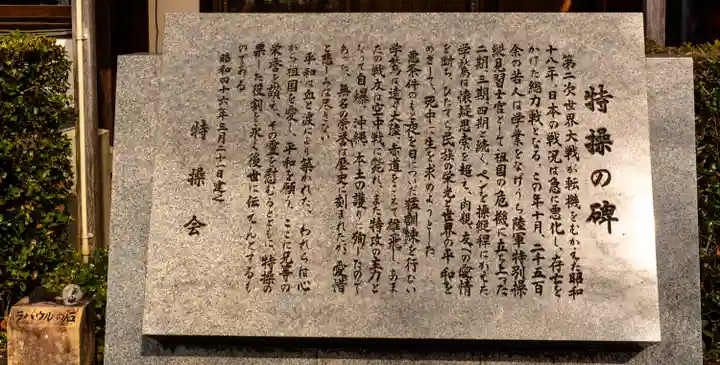 特操の碑
第二次世界大戦が転機をむかえた昭和
十八年、日本の戦況は急に悪化し、存亡を
かけた総力戦となる。この年十月、二千五百
余の若人は学業をなげうち陸軍特別操
縦見習士官として祖国の危機に立ち上った
二期、三期、四期と続く、ペンを操縦桿にかえた
学鷲は懐疑思索を超え、肉親、友への愛情
を断ち、ひたすら民族の栄光と世界の平和を
めざして、死中に生を求めようとした
悪条件のもと夜を日についだ猛訓練を行ない
学鷲は遠く大陸、赤道をこえて雄飛し、あま
たの戦友は空中戦に斃れ、また特攻の主力と
なって自爆、沖縄、本土の護りに殉じたので
あった、無名の栄誉は歴史に刻まれたが愛惜
と悲しみは尽きない
平和は血と涙により築かれた、われらは心
から祖国を愛し、平和を願う、ここに兄等の
栄誉を讃え、その霊を慰むるとともに、特操の
果した役割を永く後世に伝えんとするも
のである
昭和四十六年三月二十一日建之
特操会
ラバウルの石